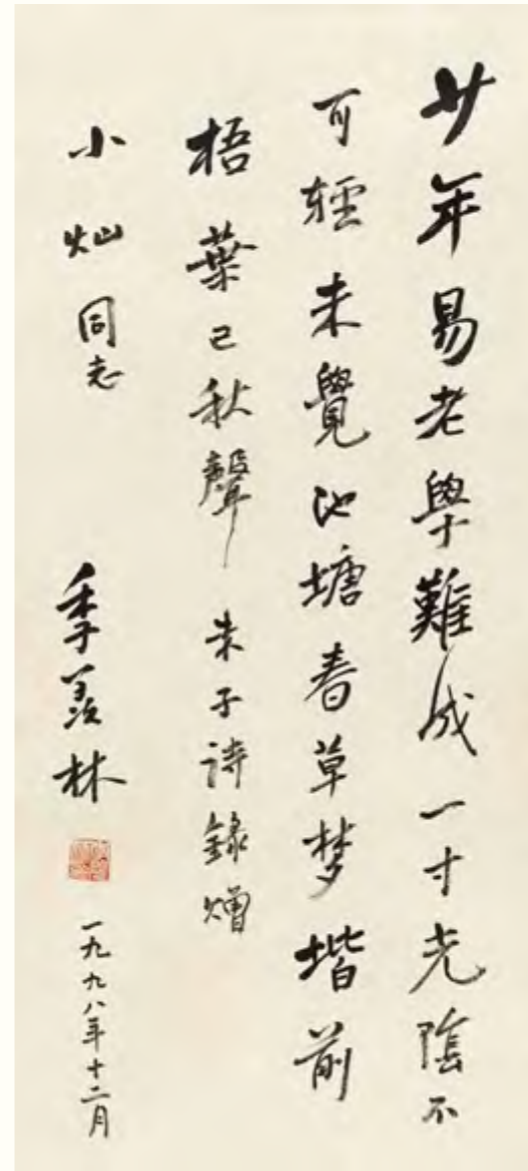 少年易老學難成一寸光陰不
可輕未覺池塘春草梦堦前
梧葉已秋聲 朱子詩錄贈
小灿同志
季羡林
一九九八年十二月